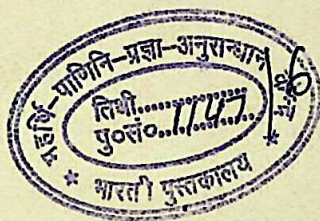 महर्षि-पाणिनि-प्रज्ञा-अनुसन्धान
तिथी..............
पु०सं०...1147.......
* भारती पुस्तकालय *